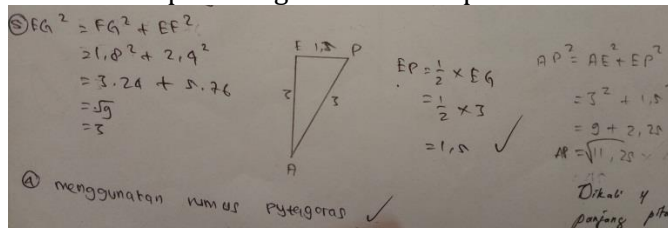 ⑤ EG² = FG² + EF²
= 1,8² + 2,4²
= 3.24 + 5.76
= √9
= 3
E 1,5 P
3 3
A
EP = ½ × EG
= ½ × 3
= 1,5 ✓
AP² = AE² + EP²
= 3² + 1,5
= 9 + 2,25
AP = √11,25
Dikali 4
panjang pita
④ menggunakan rumus pytagoras ✓